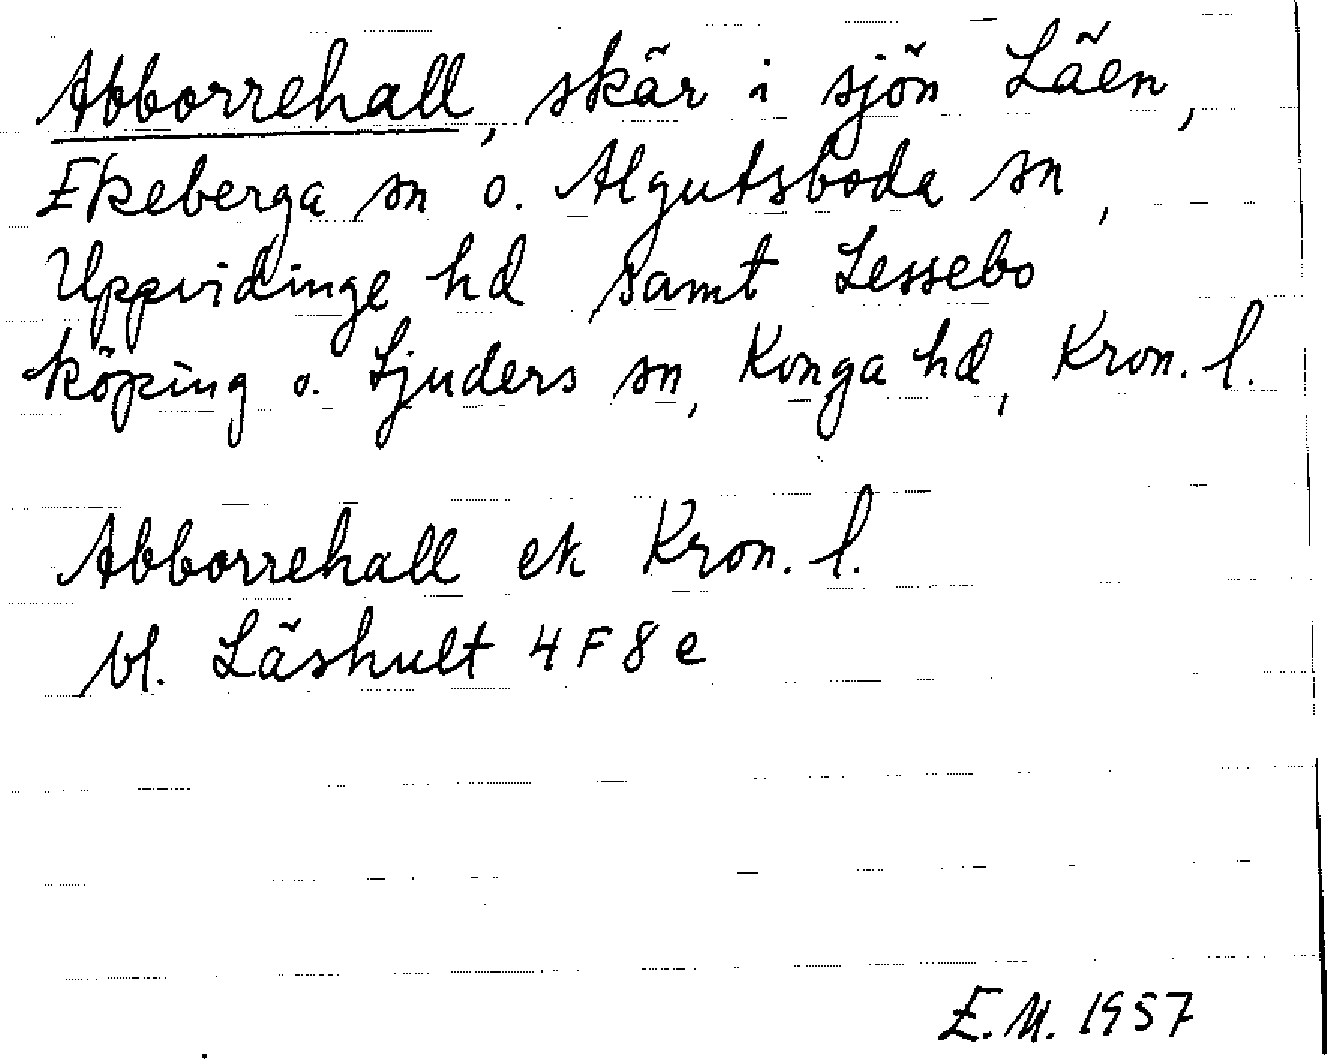 Abborrehall, skär i sjön Läen,
Ekeberga sn o. Algutsboda sn,
Uppvidinge hd samt Lessebo
köping o. Ljuders sn, Konga hd, Kron. l.
Abborrehall ek Kron. l.
bl. Läshult 4F8e
E.M. 1957